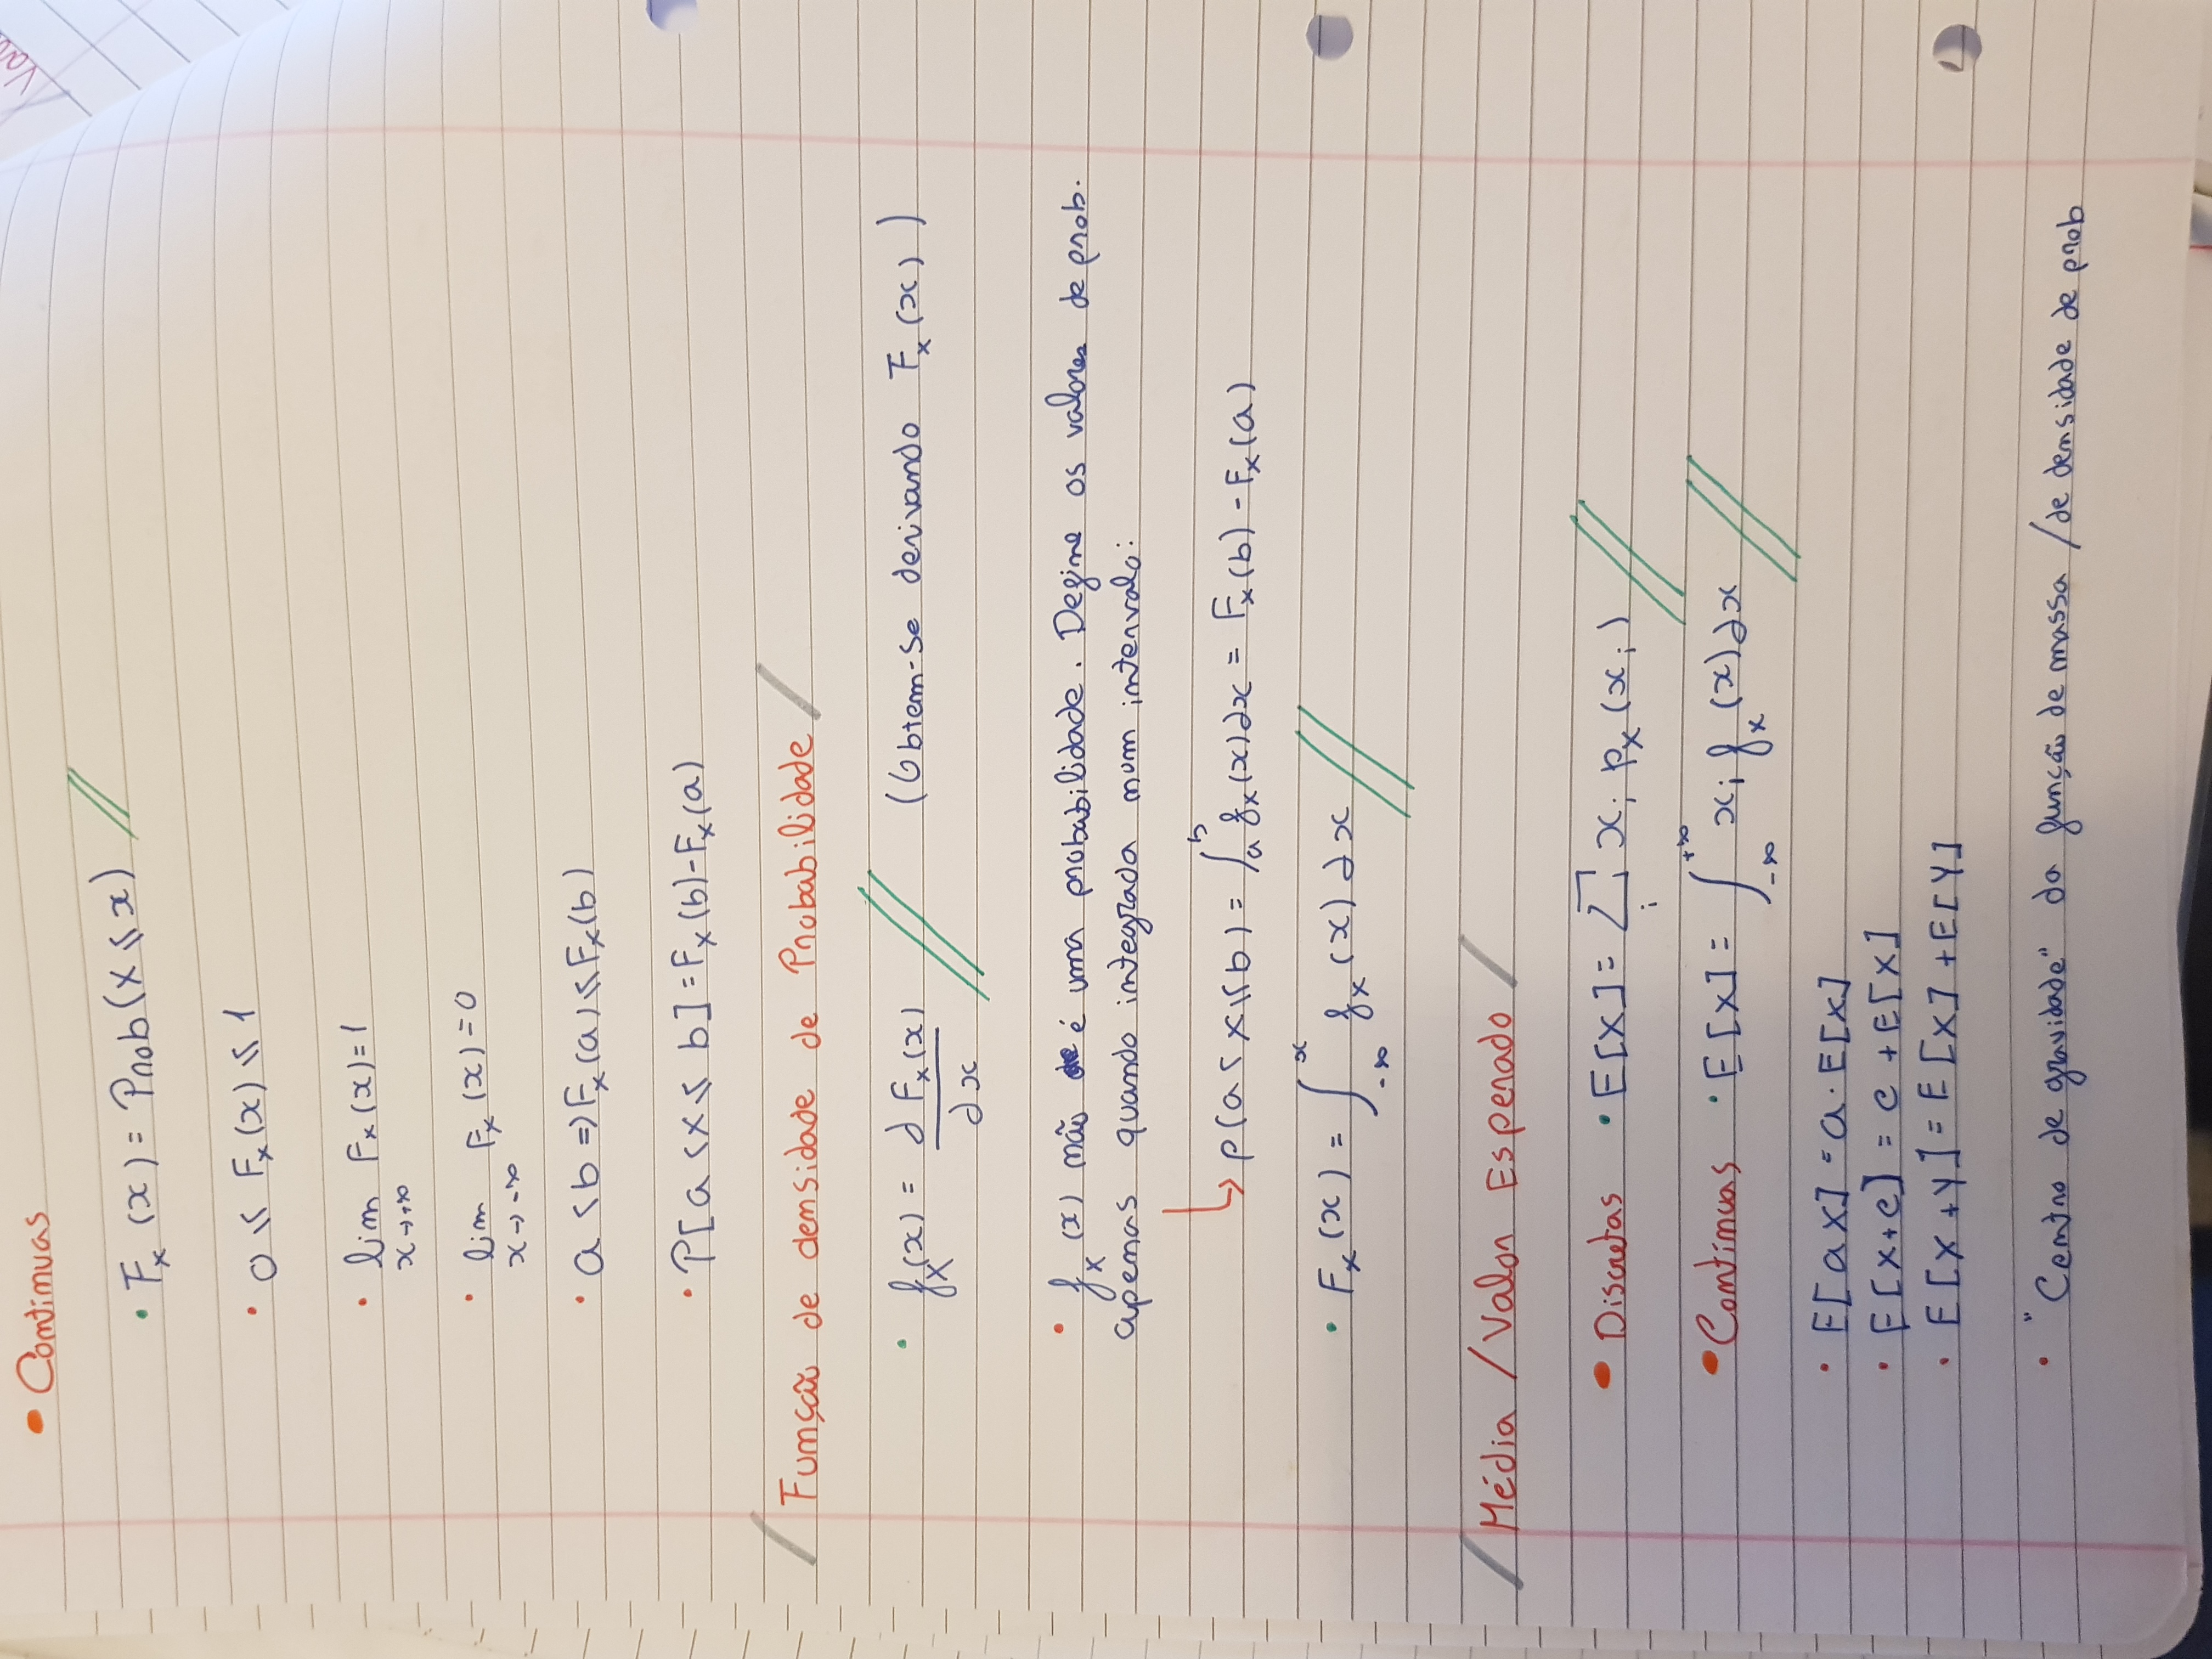 • Continuas
• F_X (x) = Prob(X ⩽ x)
• 0 ⩽ F_X(x) ⩽ 1
• lim F_X(x)=1
x→+∞
• lim F_X(x)=0
x→-∞
• a < b ⇒ F_X(a) ⩽ F_X(b)
• P[a < X ⩽ b] = F_X(b)-F_X(a)
/ Função de densidade de Probabilidade /
• f_X(x) = ∂ F_X(x) / ∂x (Obtem-se derivando F_X(x))
• f_X(x) não é uma probabilidade. Define os valores de prob.
apenas quando integrada num intervalo:
↳ P(a < X ⩽ b) = ∫_a^b f_X(x)∂x = F_X(b) - F_X(a)
• F_X(x) = ∫_-∞^x f_X(x) ∂x
/ Média / Valor Esperado /
• Discretas • E[X] = ∑_i x_i p_X(x_i)
• Continuas • E[X] = ∫_-∞^+∞ x_i f_X(x)∂x
• E[aX] = a · E[X]
• E[X+c] = c + E[X]
• E[X+Y] = E[X] + E[Y]
• "Centro de gravidade" da função de massa / de densidade de prob